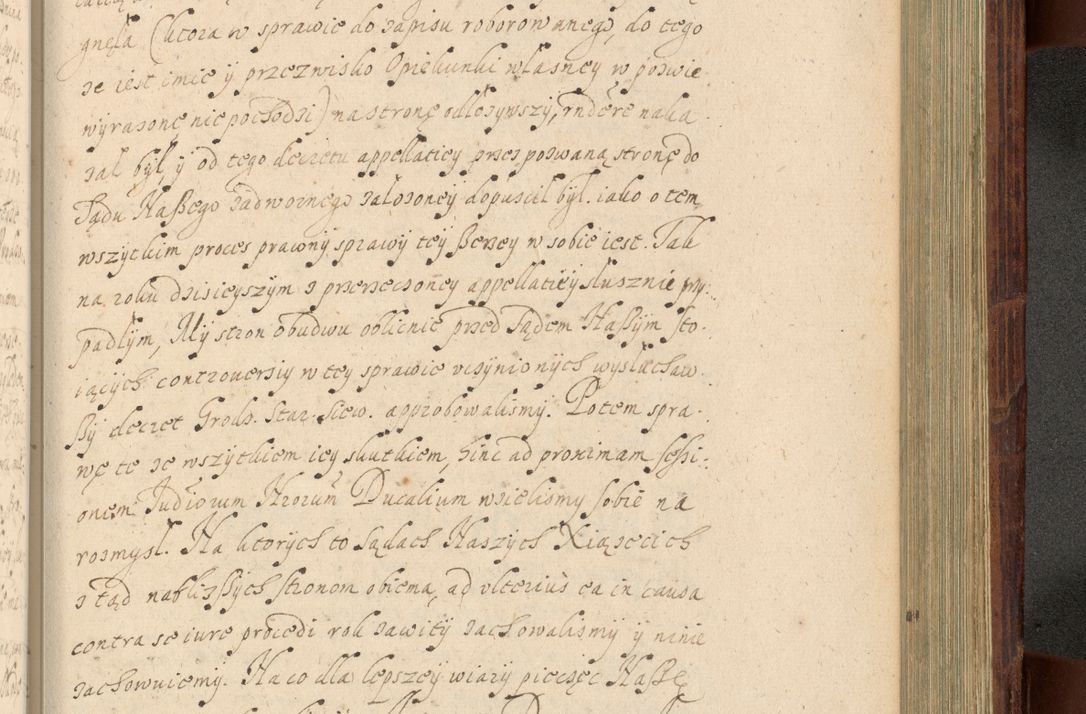 gnęła (ktora w sprawie do zapisu roborowanego, do tego
ze iest imie ÿ przezwisko Opiekunki własney w pozwie
wyrazone nie pochodzi) na stronę odłozywszÿ, rndere naka
zał był, ÿ od tego decretu appellatieÿ przez pozwaną stronę do
Sądu Naßego zadwornego załozoneÿ dopuscił był. iako o tem
wszÿtkim proces prawnÿ sprawÿ teÿ ßerzeÿ w sobie iest. Tak
na roku dzisieÿszÿm z przerzeczoneÿ appellatieÿ słusznie prz:
padłÿm, Mÿ stron obudwu oblicnie przed Sądem Naßÿm sto.
iącÿch controuersiÿ w teÿ sprawie vczÿnionÿch wysłuchaw
ßÿ decret Grodz. Star. Siew. approbowalismÿ. Potem spra.
wę te ze wszÿtkiem ieÿ skutkiem, hinc ad proximam seßi:
onem Judiorum Nrorum Ducalium wzielismÿ sobie na
rozmysł. Na ktorÿch to Sądach Naszÿch Xiązecich
z tąd nabliszßÿch stronom obiema, ad vlterius ea in causa
contra se iure procedi rok zawitÿ zachowalismÿ ÿ ninie
zachowuiemÿ. Na co dla lepszeÿ wiarÿ pieczęc Naßę